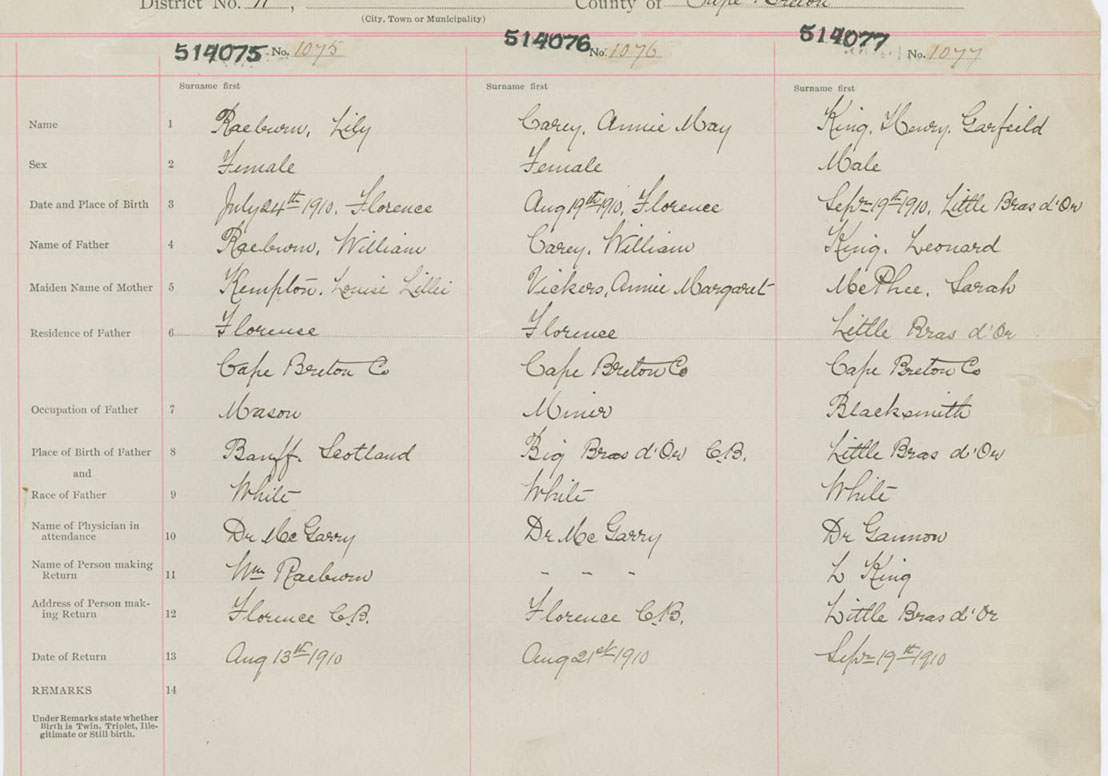 District No. 11, County of Cape Breton
(City, Town or Municipality)
514075 No. 1075 514076 No. 1076 514077 No. 1077
Surname first Surname first Surname first
Name 1 Raeburn, Lily Carey, Annie May King, Henry Garfeild
Sex 2 Female Female Male
Date and Place of Birth 3 July 24th 1910, Florence Aug 19th 1910, Florence Sepr 19th 1910, Little Bras d'Or
Name of Father 4 Raeburn, William Carey, William King, Leonard
Maiden Name of Mother 5 Kempton, Louise Lillie Vickers, Annie Margaret McPhee, Sarah
Residence of Father 6 Florence Florence Little Bras d'Or
Cape Breton Co Cape Breton Co Cape Breton Co
Occupation of Father 7 Mason Miner Blacksmith
Place of Birth of Father 8 Banff, Scotland Big Bras d'Or C.B. Little Bras d'Or
and
Race of Father 9 White White White
Name of Physician in
attendance 10 Dr McGarry Dr McGarry Dr Gannon
Name of Person making
Return 11 Wm Raeburn - - - L King
Address of Person mak-
ing Return 12 Florence C.B. Florence C.B. Little Bras d'Or
Date of Return 13 Aug 13th 1910 Aug 21st 1910 Sepr 19th 1910
REMARKS 14
Under Remarks state whether
Birth is Twin, Triplet, Ille-
gitimate or Still birth.